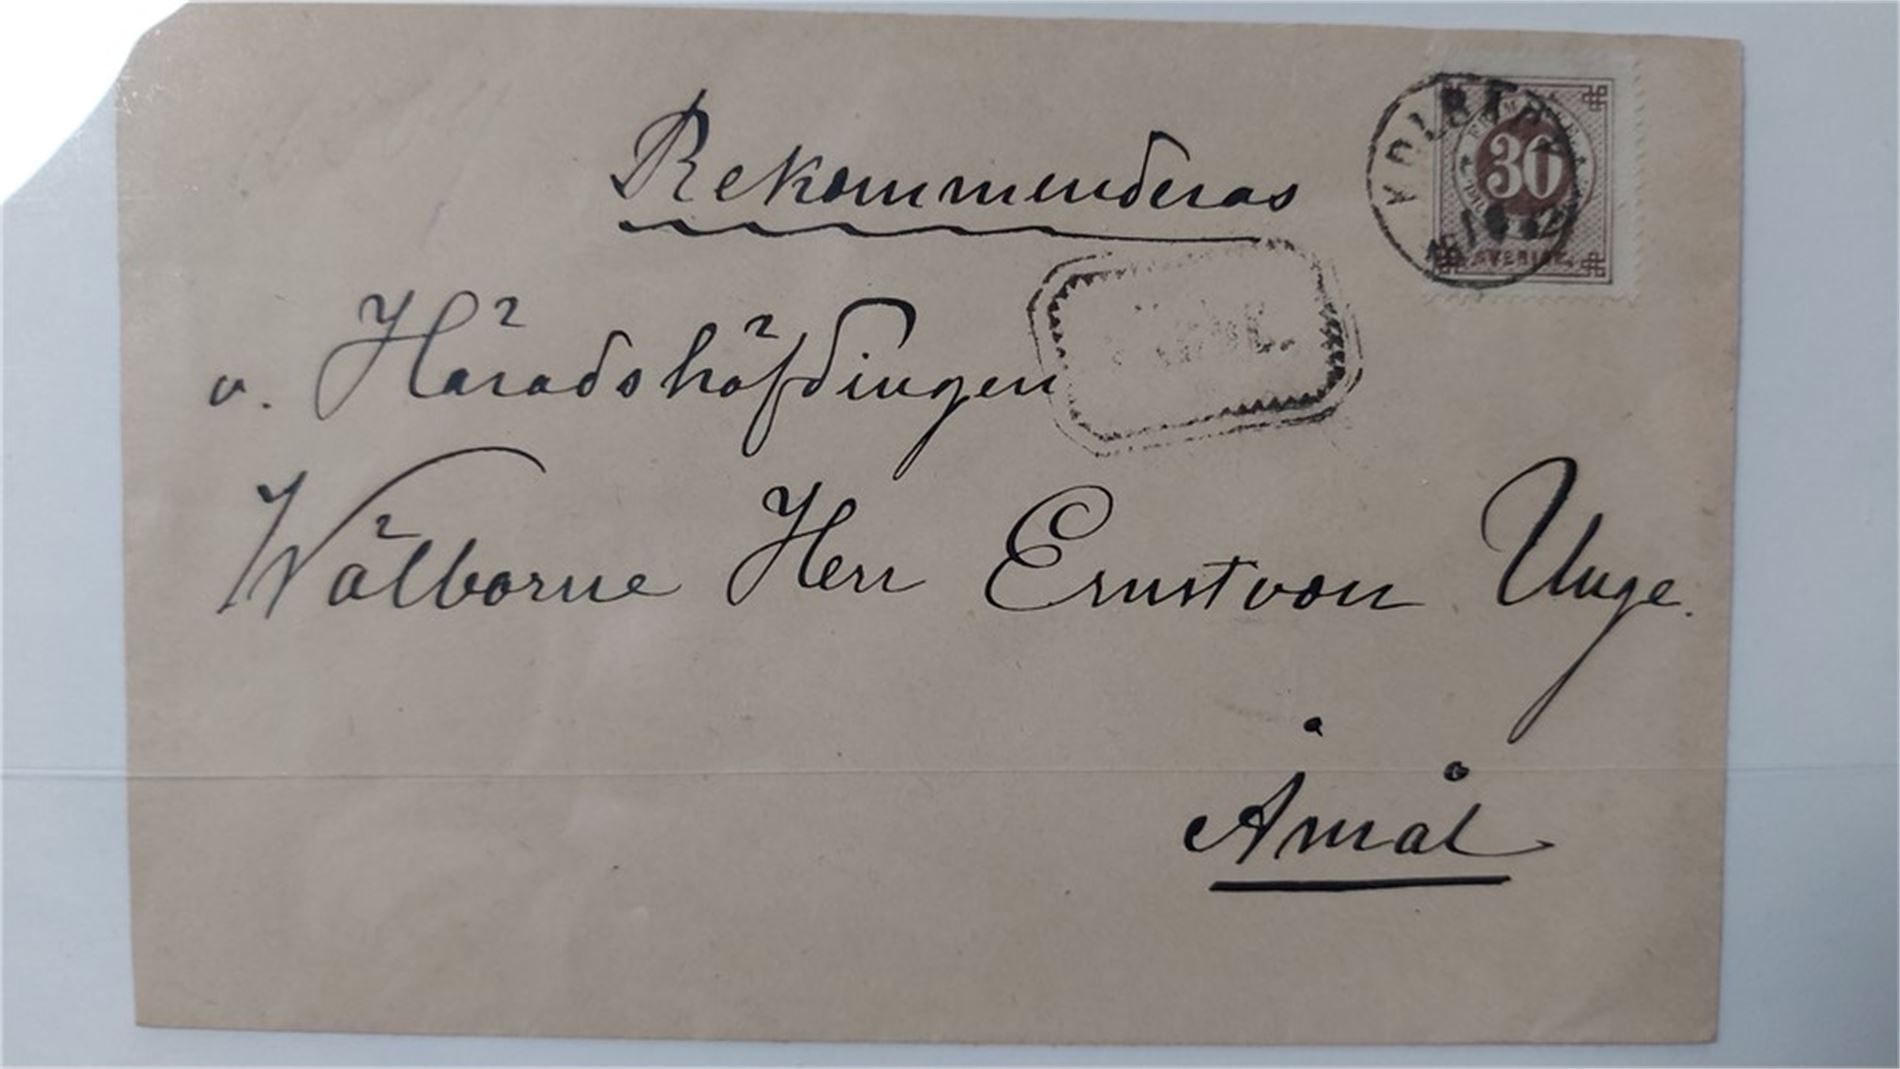 Rekommenderas
30
SVERIGE
v. Häradshöfdingen
Wälborne Herr Ernst von Unge.
Åmål